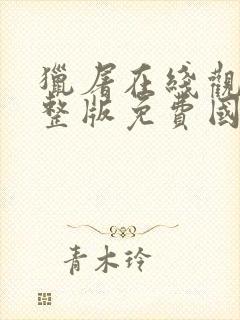 獵屠在綫觀
整版免費國
青木玲